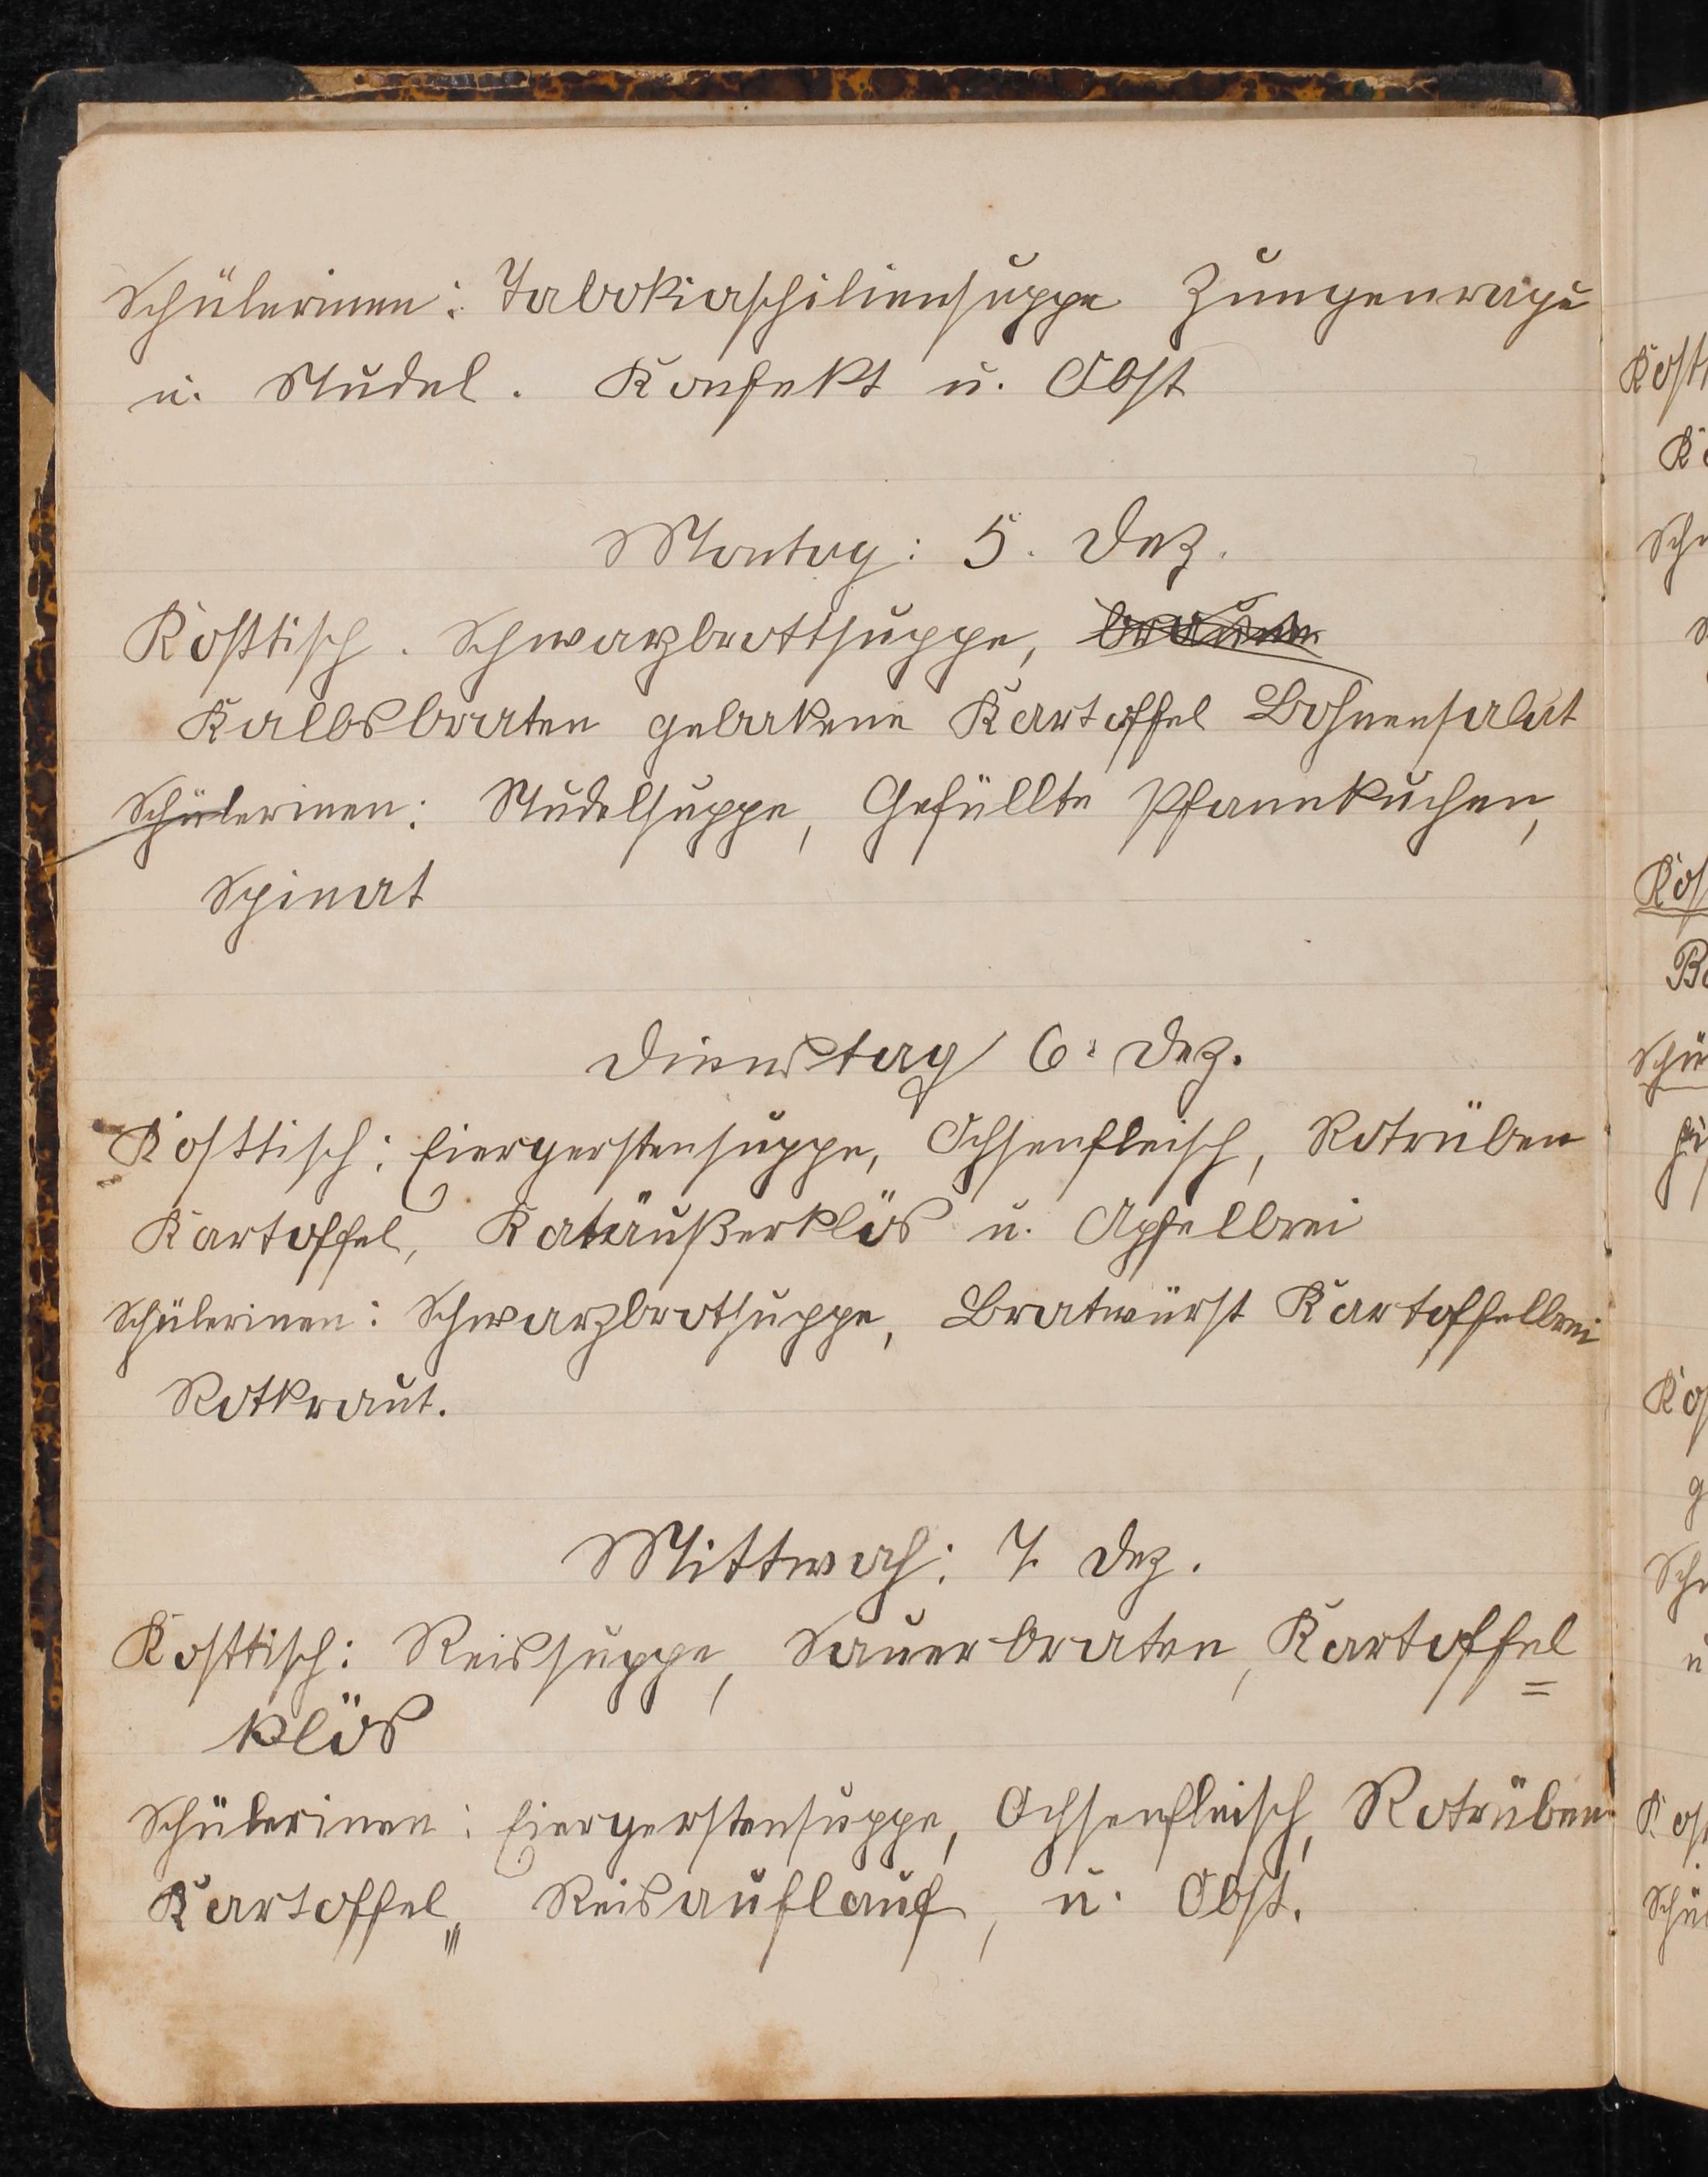 Schülerinnen: Tabokiaschiliensuppe Zungenragu
u. Nudel. Konfekt u. Obst
Montag: 5. Dez.
Kosttisch. Schwarzbrottsuppe, braune
Kalbsbraten gebakene Kartoffel Bohnensalat
Schülerinen: Nudelsuppe, Gefüllte Pfannkuchen,
Spinat
Dienstag 6. Dez.
Kosttisch: Eiergerstensuppe, Ochsenfleisch, Rotrüben
Kartoffel, Katäußerklös u. Apfelbrei
Schülerinen: Schwarzbrotsuppe, Bratwürst Kartoffelbrei
Rotkraut.
Mittwoch: 7. Dez.
Kosttisch: Reissuppe, Sauerbraten, Kartoffel=
klös
Schülerinen: Eiergerstensuppe, Ochsenfleisch, Rotrüben
Kartoffel, Reisauflauf, u. Obst.